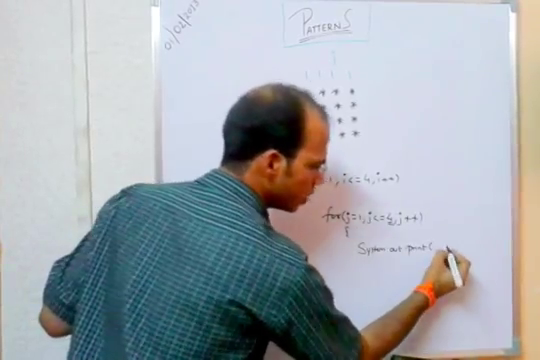 01/02/2013
PATTERNS
j
1 1 1 1
* * *
* *
* *
* *
=1, i<=4, i++)
for(j=1, j<=4, j++)
{
System out print(